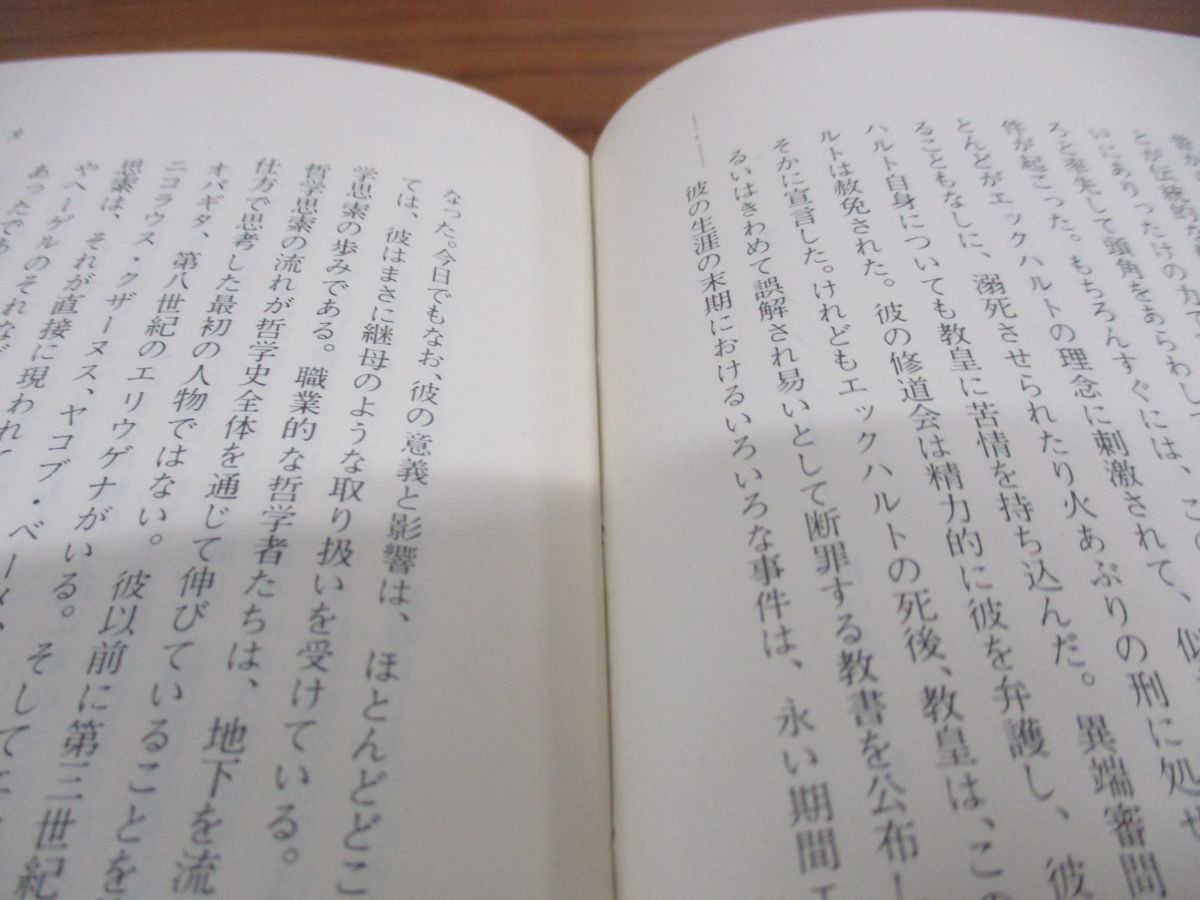 とが伝統的な
にありったけの力で、この
ろと率先して頭角をあらわし
件が起こった。もちろんすぐには、
とんどがエックハルトの理念に刺激されて、似
ることもなしに、溺死させられたり火あぶりの刑に処せ
ハルト自身についても教皇に苦情を持ち込んだ。異端審問
ルトは赦免された。彼の修道会は精力的に彼を弁護し、彼
そかに宣言した。けれどもエックハルトの死後、教皇は、この
るいはきわめて誤解され易いとして断罪する教書を公布し
彼の生涯の末期におけるいろいろな事件は、永い期間エ
なった。今日でもなお、彼の意義と影響は、ほとんどどこ
ては、彼はまさに継母のような取り扱いを受けている。
学思索の歩みである。職業的な哲学者たちは、地下を流
哲学思索の流れが哲学史全体を通じて伸びていることを
仕方で思考した最初の人物ではない。彼以前に第三世紀
オパギタ、第八世紀のエリウゲナがいる。そしてエ
ニコラウス・クザーヌス、ヤコブ・ベーメ、
思索は、それが直接に現われて
やヘーゲルのそれなど
あったであ